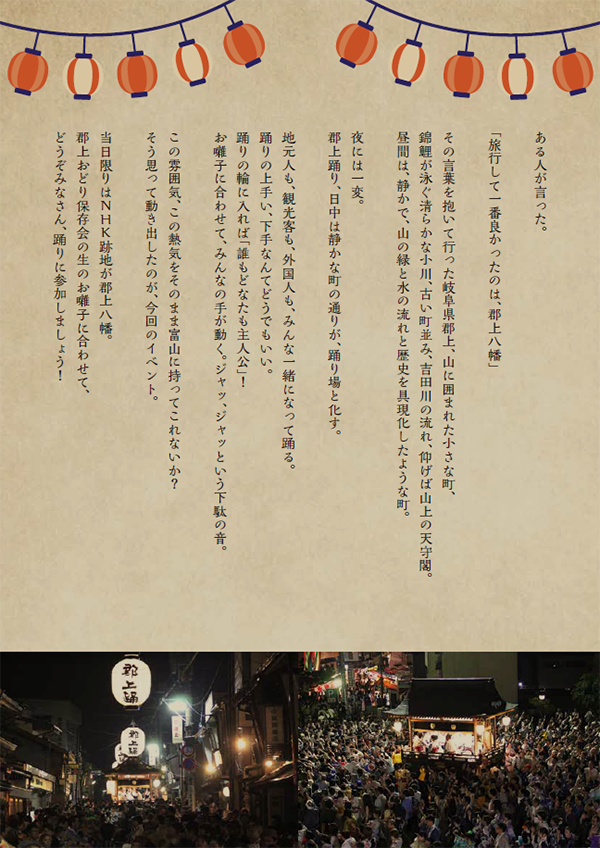 ある人が言った。
「旅行して一番良かったのは、郡上八幡」
その言葉を抱いて行った岐阜県郡上、山に囲まれた小さな町、
錦鯉が泳ぐ清らかな小川、古い町並み、吉田川の流れ、仰げば山上の天守閣。
昼間は、静かで、山の緑と水の流れと歴史を具現化したような町。
夜には一変。
郡上踊り、日中は静かな町の通りが、踊り場と化す。
地元人も、観光客も、外国人も、みんな一緒になって踊る。
踊りの上手い、下手なんてどうでもいい。
踊りの輪に入れば「誰もどなたも主人公」！
お囃子に合わせて、みんなの手が動く。ジャッ、ジャッという下駄の音。
この雰囲気、この熱気をそのまま富山に持ってこれないか？
そう思って動き出したのが、今回のイベント。
当日限りはＮＨＫ跡地が郡上八幡。
郡上おどり保存会の生のお囃子に合わせて、
どうぞみなさん、踊りに参加しましょう！
郡上踊
郡上踊